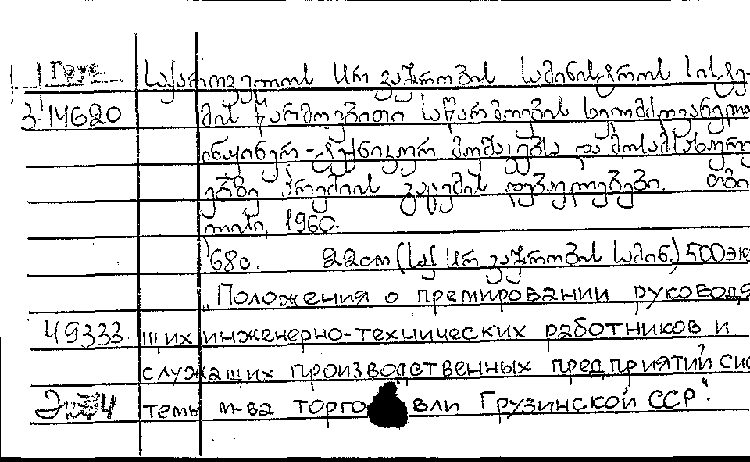 Груз. საქართველოს სსრ ვაჭრობის სამინისტროს სისტე-
3 14620 მის წარმოებითი საწარმოების ხელმძღვანელ
ინჟინერ-ტექნიკურ მუშაკებსა და მოსამსახურე
ებზე პრემიის გაცემის დებულებები. თბი
ლისი, 1960.
68გ. 22სმ (საქ სსრ ვაჭრობის სამინ.) 500 эк
"Положения о премировании руководя
49333 щих инженерно-технических работников и
служащих производственных предприятий сис
темы м-ва торговли Грузинской ССР".